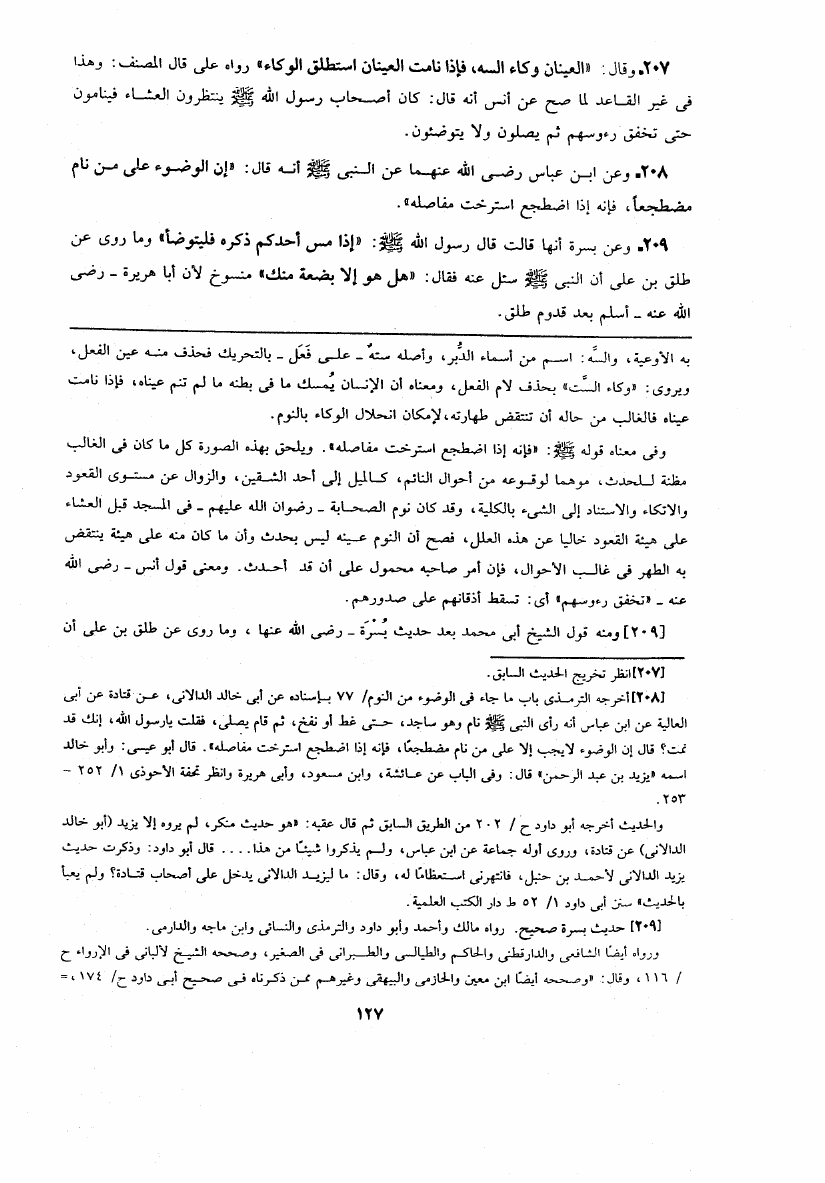 ٢٠٧ـ وقال: «العينان وكاء السه، فإذا نامت العينان استطلق الوكاء» رواه على قال المصنف: وهذا
فى غير القاعد لما صح عن أنس أنه قال: كان أصحاب رسول الله ﷺ ينتظرون العشاء فينامون
حتى تخفق رءوسهم ثم يصلون ولا يتوضئون.
٢٠٨ـ وعن ابن عباس رضى الله عنهما عن النبى ﷺ أنه قال: «إن الوضوء على من نام
مضطجعاً، فإنه إذا اضطجع استرخت مفاصله».
٢٠٩ـ وعن بسرة أنها قالت قال رسول الله ﷺ: «إذا مس أحدكم ذكره فليتوضأ» وما روى عن
طلق بن على أن النبى ﷺ سئل عنه فقال: «هل هو إلا بضعة منك» منسوخ لأن أبا هريرة ـ رضى
الله عنه ـ أسلم بعد قدوم طلق.
به الأوعية، والسَّه: اسم من أسماء الدُّبر، وأصله ستهٌ ـ على فَعَل ـ بالتحريك فحذف منه عين الفعل،
ويروى: «وكاء السَّت» بحذف لام الفعل، ومعناه أن الإنسان يُمسك ما فى بطنه ما لم تنم عيناه، فإذا نامت
عيناه فالغالب من حاله أن تنتقض طهارته، لإمكان انحلال الوكاء بالنوم.
وفى معناه قوله ﷺ: «فإنه إذا اضطجع استرخت مفاصله». ويلحق بهذه الصورة كل ما كان فى الغالب
مظنة للحدث، موهما لوقوعه من أحوال النائم، كالميل إلى أحد الشقين، والزوال عن مستوى القعود
والاتكاء والاستناد إلى الشىء بالكلية، وقد كان نوم الصحابة ـ رضوان الله عليهم ـ فى المسجد قبل العشاء
على هيئة القعود خاليا عن هذه العلل، فصح أن النوم عينه ليس بحدث وأن ما كان منه على هيئة ينتقض
به الطهر فى غالب الأحوال، فإن أمر صاحبه محمول على أن قد أحدث. ومعنى قول أنس ـ رضى الله
عنه ـ «تخفق رءوسهم» أى: تسقط أذقانهم على صدورهم.
[٢٠٩] ومنه قول الشيخ أبى محمد بعد حديث بُسْرَة ـ رضى الله عنها ، وما روى عن طلق بن على أن
[٢٠٧] انظر تخريج الحديث السابق.
[٢٠٨] أخرجه الترمذى باب ما جاء فى الوضوء من النوم/ ٧٧ بإسناده عن أبى خالد الدالانى، عن قتادة عن أبى
العالية عن ابن عباس أنه رأى النبى ﷺ نام وهو ساجد، حتى غط أو نفخ، ثم قام يصلى، فقلت يارسول الله، إنك قد
نمت؟ قال إن الوضوء لايجب إلا على من نام مضطجعًا، فإنه إذا اضطجع استرخت مفاصله». قال أبو عيسى: وأبو خالد
اسمه «يزيد بن عبد الرحمن» قال: وفى الباب عن عائشة، وابن مسعود، وأبى هريرة وانظر تحفة الأحوذى ١/ ٢٥٢ -
٢٥٣.
والحديث أخرجه أبو داود ح / ٢٠٢ من الطريق السابق ثم قال عقبه: «هو حديث منكر، لم يروه إلا يزيد (أبو خالد
الدالانى) عن قتادة، وروى أوله جماعة عن ابن عباس، ولم يذكروا شيئًا من هذا.... قال أبو داود: وذكرت حديث
يزيد الدالانى لأحمد بن حنبل، فانتهرنى استعظامًا له، وقال: ما ليزيد الدالانى يدخل على أصحاب قتادة؟ ولم يعبأ
بالحديث» سنن أبى داود ١/ ٥٢ ط دار الكتب العلمية.
[٢٠٩] حديث بسرة صحيح. رواه مالك وأحمد وأبو داود والترمذى والنسائى وابن ماجه والدارمى.
ورواه أيضًا الشافعى والدارقطنى والحاكم والطيالسى والطبرانى فى الصغير، وصححه الشيخ لألبانى فى الإرواء ح
/ ١١٦، وقال: «وصححه أيضًا ابن معين والحازمى والبيهقى وغيرهم ممن ذكرناه فى صحيح أبى داود ح/ ١٧٤، =
١٢٧